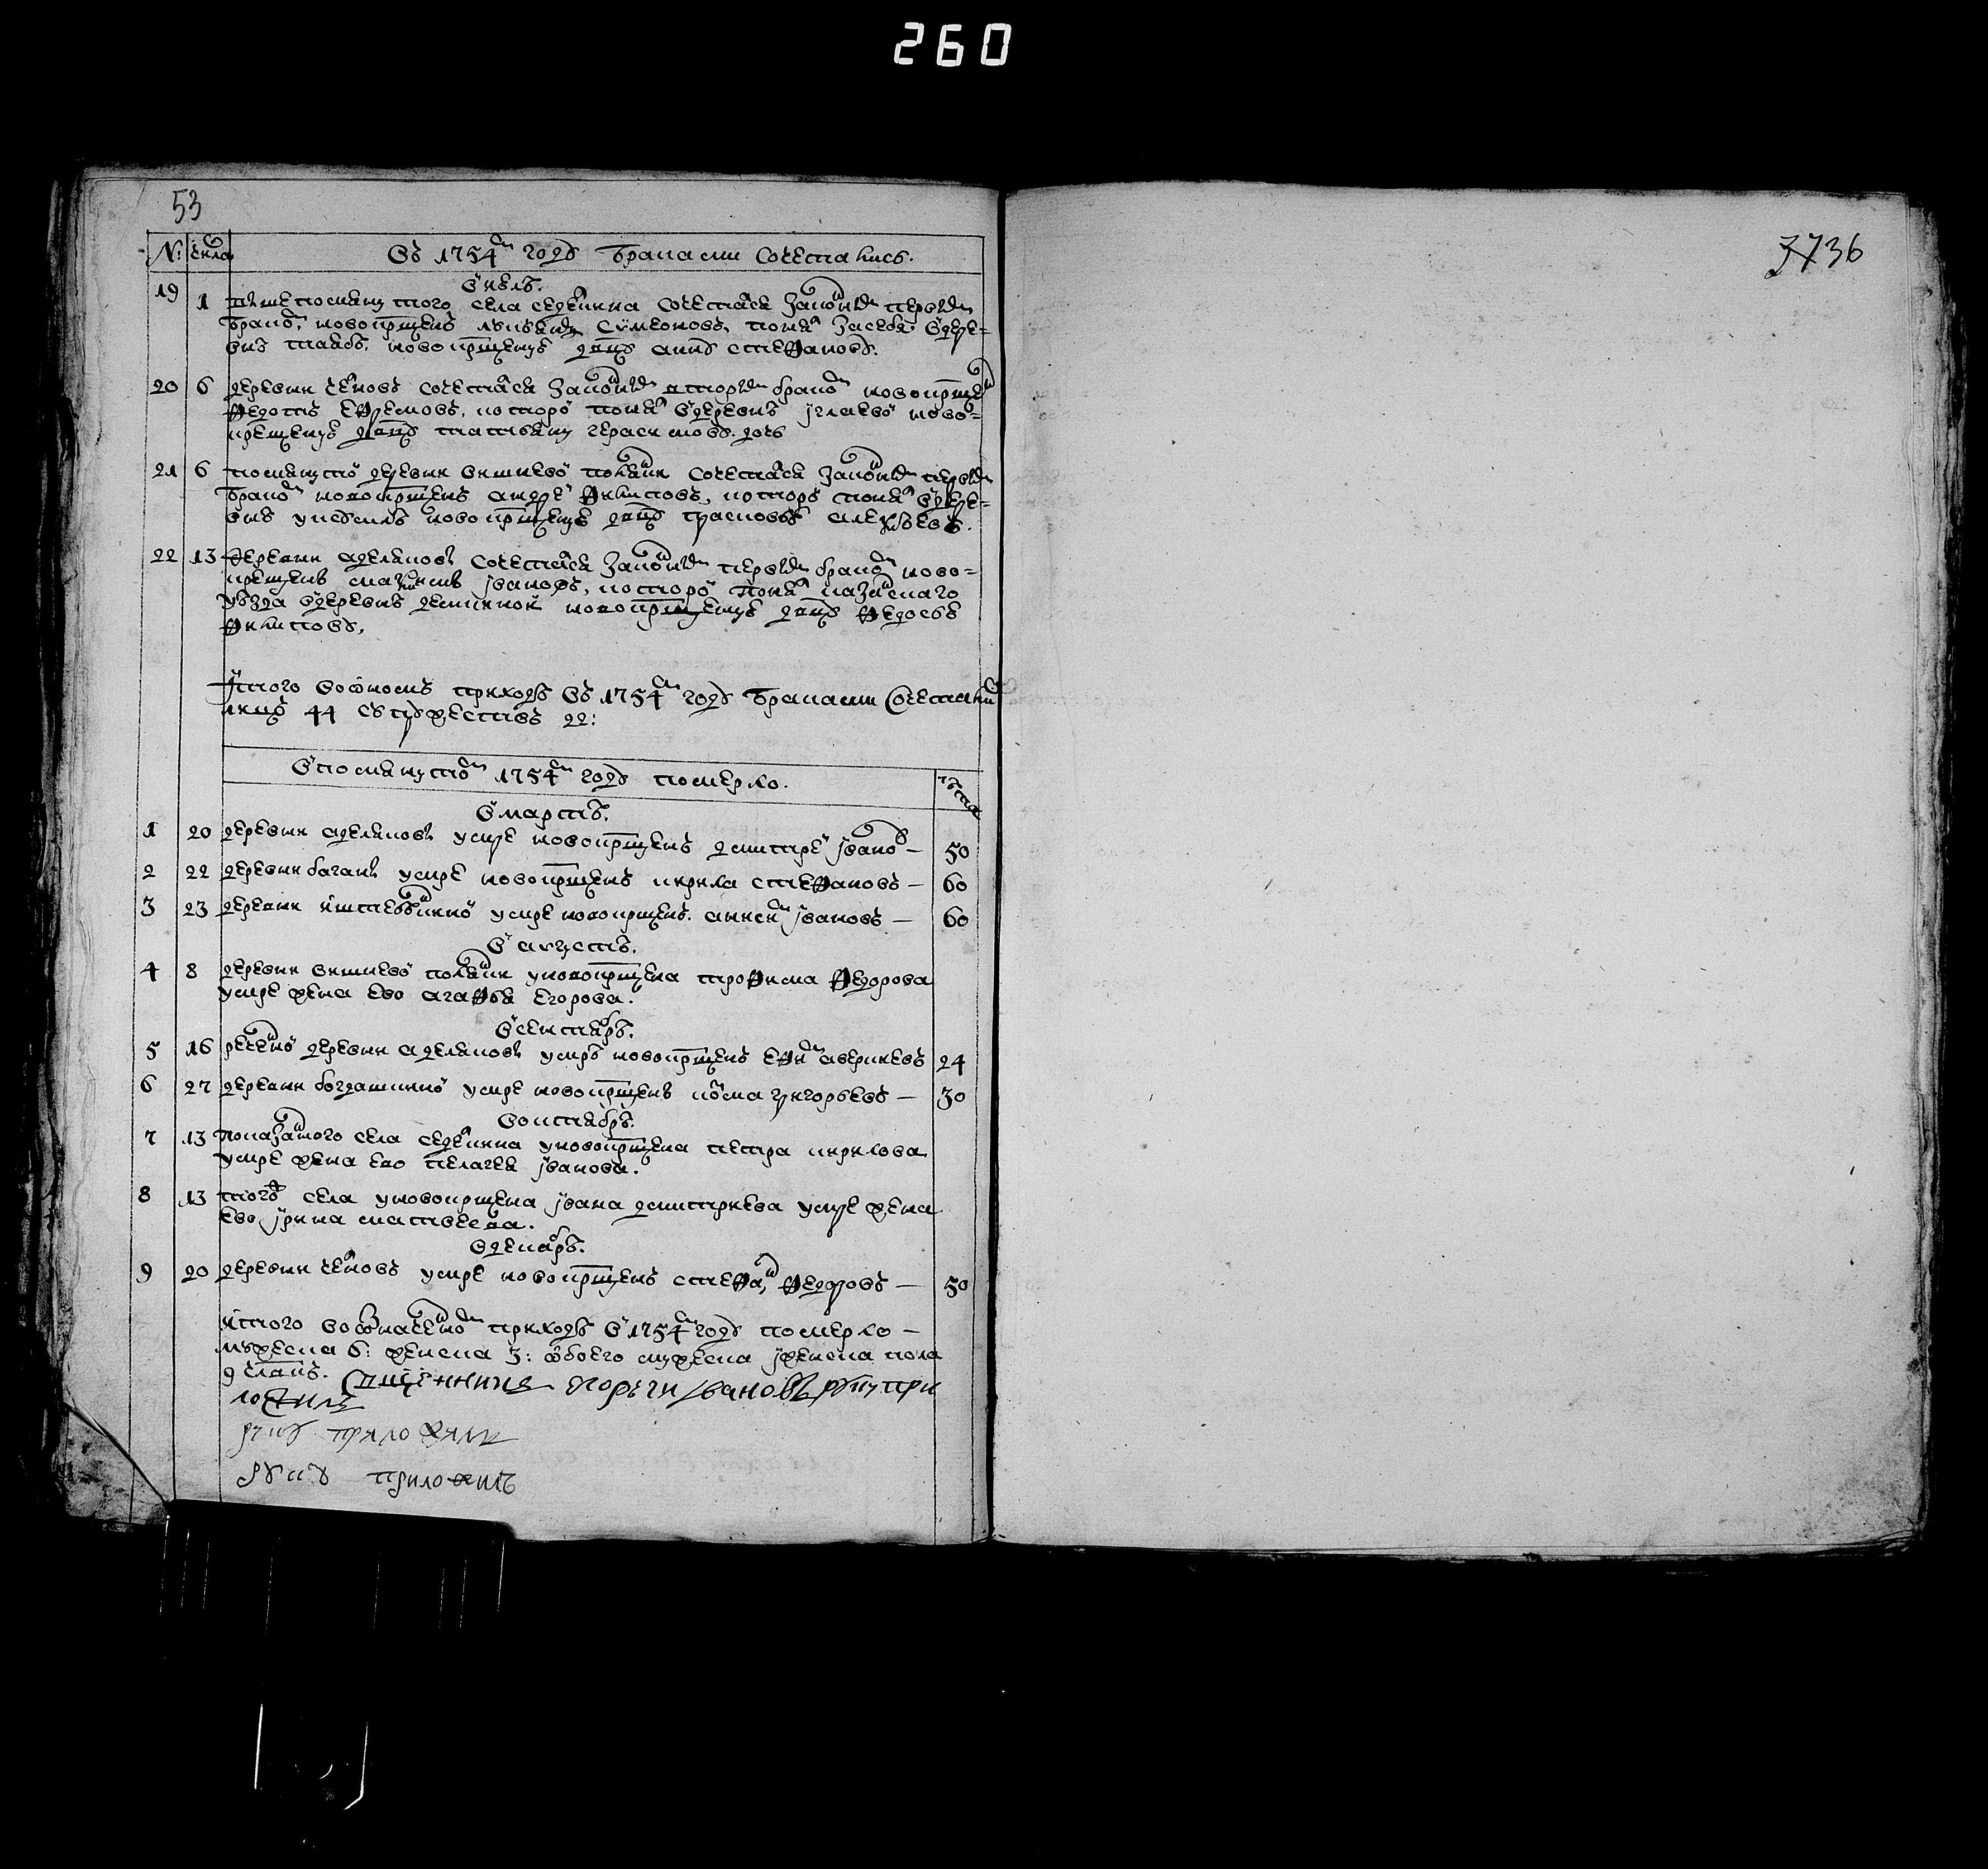 260
53
№: числа Въ 1754м году браками сочетались.
виюлѣ.
19 1 вышепомянутого села седелкина сочетался законным первым
браком, новокрщенъ лукьянъ сѵмеоновъ, понял засебя вдере-
внѣ новокрщенцу двцу анну степанову.
20 6 деревни челновъ сочетался законным вторым браком новокрщен
федотъ ефремовъ, которой понял вдеревнѣ иглаево ново-
крещенцу двцу татьяну герасимову дочь
21 6 помянутой деревни вишневой поляни сочетался законным первым
браком новокрщенъ андрей филиповъ, которой понял вдере-
внѣ новокрщенцу двцу прасковью алеѯѣеву.
22 13 деревни аделяковы сочетался законным первым браком ново-
крещенъ маѯимъ ивановъ, которой понял казанского
уѣзда вдеревнѣ новокрщенцу двцу федосью
филипову,
итого воономъ приходѣ въ 1754м году браками сочетаний
лицъ 44 супружествъ 22:
Впомянутом 1754м году померло. лѣта
вмартѣ.
1 20 деревни аделяковы умре новокрщенъ дмитрей иванов — 50
2 22 деревни баганы умре новокрщенъ кирила степановъ — 60
3 23 деревни умре новокрщенъ ивановъ — 60
вавгустѣ.
4 8 деревни вишневой поляни уновокрщена трофима федорова
умре жена ево агафья егорова.
Всентябрѣ.
5 16 реченой деревни аделяковы умрѣ новокрщенъ ефим аверкиевъ 24
6 27 деревни богдашкиной умре новокрщенъ козма григорьевъ — 30
воктябрѣ.
7 13 показанного села седелкина уновокрщена петра кирилова
умре жена ево пелагея иванова.
8 13 тогож села уновокрщена ивана дмитриева умре жена
ево ирина матвеева.
вдекабрѣ.
9 20 деревни чолновъ умре новокрщенъ степан федоровъ — 50
итого воозначенном приходѣ в 1754м году померло —
мужеска 6: женска 3: обоего мужеска иженска пола
9 члвкъ. Сщенникъ егоргеи ивановъ руку при
ложилъ
руку приложилъ
руку приложилъ
736